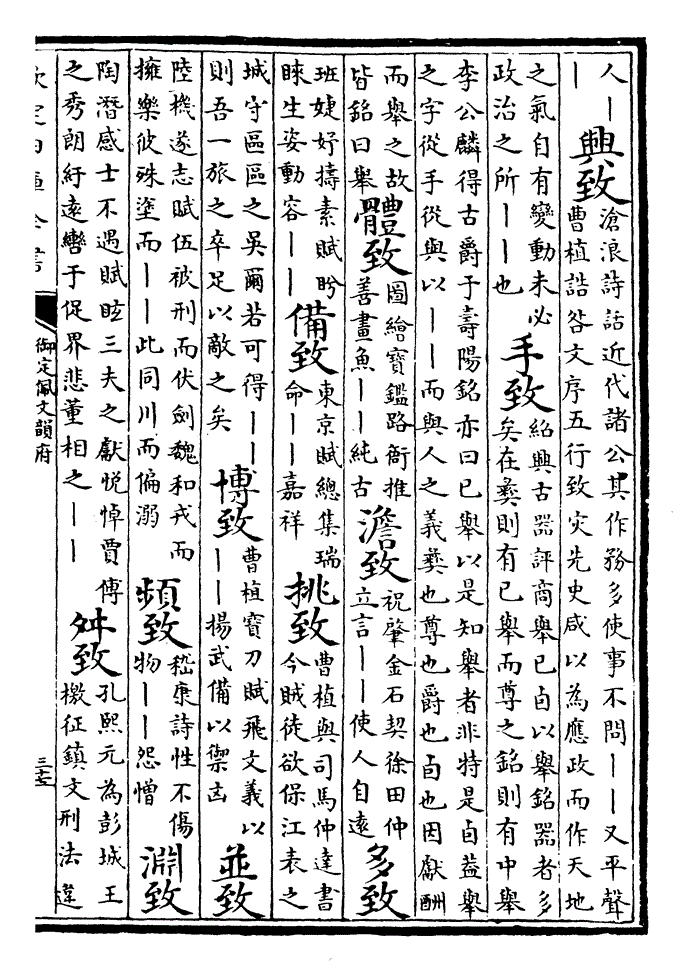 人丨丨興致滄浪詩話近代諸公其作務多使事不問丨丨又平聲曹植誥咎文序五行致灾先史咸以為應政而作天地
之氣自有變動未必政治之所丨丨也手致紹興古器評商舉已卣以舉銘器者多矣在彝則有已舉而尊之銘則有中舉
李公麟得古爵于壽陽銘亦曰已舉以是知舉者非特是卣葢舉之字從手從與以丨丨而與人之義彝也尊也爵也卣也因獻酬
而舉之故皆銘曰舉體致圖繪寶鑑路衙推善畫魚丨丨純古澹致祝肇金石契徐田仲立言丨丨使人自遠多致
班婕妤擣素賦盼睞生姿動容丨丨備致東京賦總集瑞命丨丨嘉祥挑致曹植與司馬仲達書今賊徒欲保江表之
城守區區之吳爾若可得丨丨則吾一旅之卒足以敵之矣博致曹植寶刀賦飛文義以丨丨揚武備以禦凶並致
陸機遂志賦伍被刑而伏劍魏和戎而擁樂彼殊塗而丨丨此同川而偏溺頻致嵇康詩性不傷物丨丨怨憎淵致
陶潛感士不遇賦眩三夫之獻悦悼賈傅之秀朗紆遠轡于促界悲董相之丨丨舛致孔熙元為彭城王檄征鎮文刑法違
欽定四庫全書
御定佩文韻府